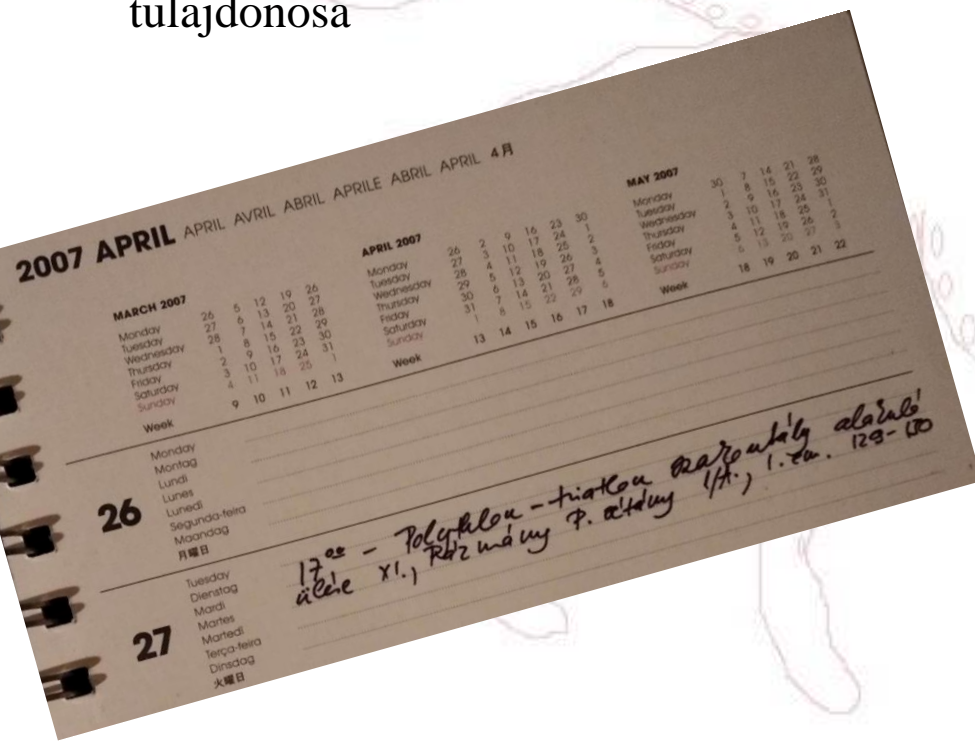 tulajdonosa
2007 APRIL APRIL AVRIL ABRIL APRILE ABRIL APRIL 4月
MARCH 2007
Monday 26 5 12 19 26
Tuesday 27 6 13 20 27
Wednesday 28 7 14 21 28
Thursday 1 8 15 22 29
Friday 2 9 16 23 30
Saturday 3 10 17 24 31
Sunday 4 11 18 25 1
Week 9 10 11 12 13
APRIL 2007
Monday 26 2 9 16 23 30
Tuesday 27 3 10 17 24 1
Wednesday 28 4 11 18 25 2
Thursday 29 5 12 19 26 3
Friday 30 6 13 20 27 4
Saturday 31 7 14 21 28 5
Sunday 1 8 15 22 29 6
Week 13 14 15 16 17 18
MAY 2007
Monday 30 7 14 21 28
Tuesday 1 8 15 22 29
Wednesday 2 9 16 23 30
Thursday 3 10 17 24 31
Friday 4 11 18 25 1
Saturday 5 12 19 26 2
Sunday 6 13 20 27 3
Week 18 19 20 21 22
26
Monday
Montag
Lundi
Lunes
Lunedì
Segunda-feira
Maandag
月曜日
27
Tuesday
Dienstag
Mardi
Martes
Martedì
Terça-feira
Dinsdag
火曜日
17⁰⁰ – triatlon szakosztály alakuló
ülése XI., Pázmány P. sétány 1/A., 1. em. 129-130